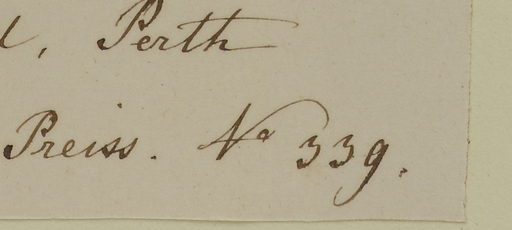 , Perth
Preiss. No 339.